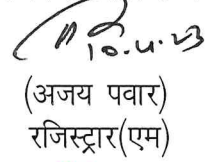 10.4.23
(अजय पवार)
रजिस्ट्रार(एम)